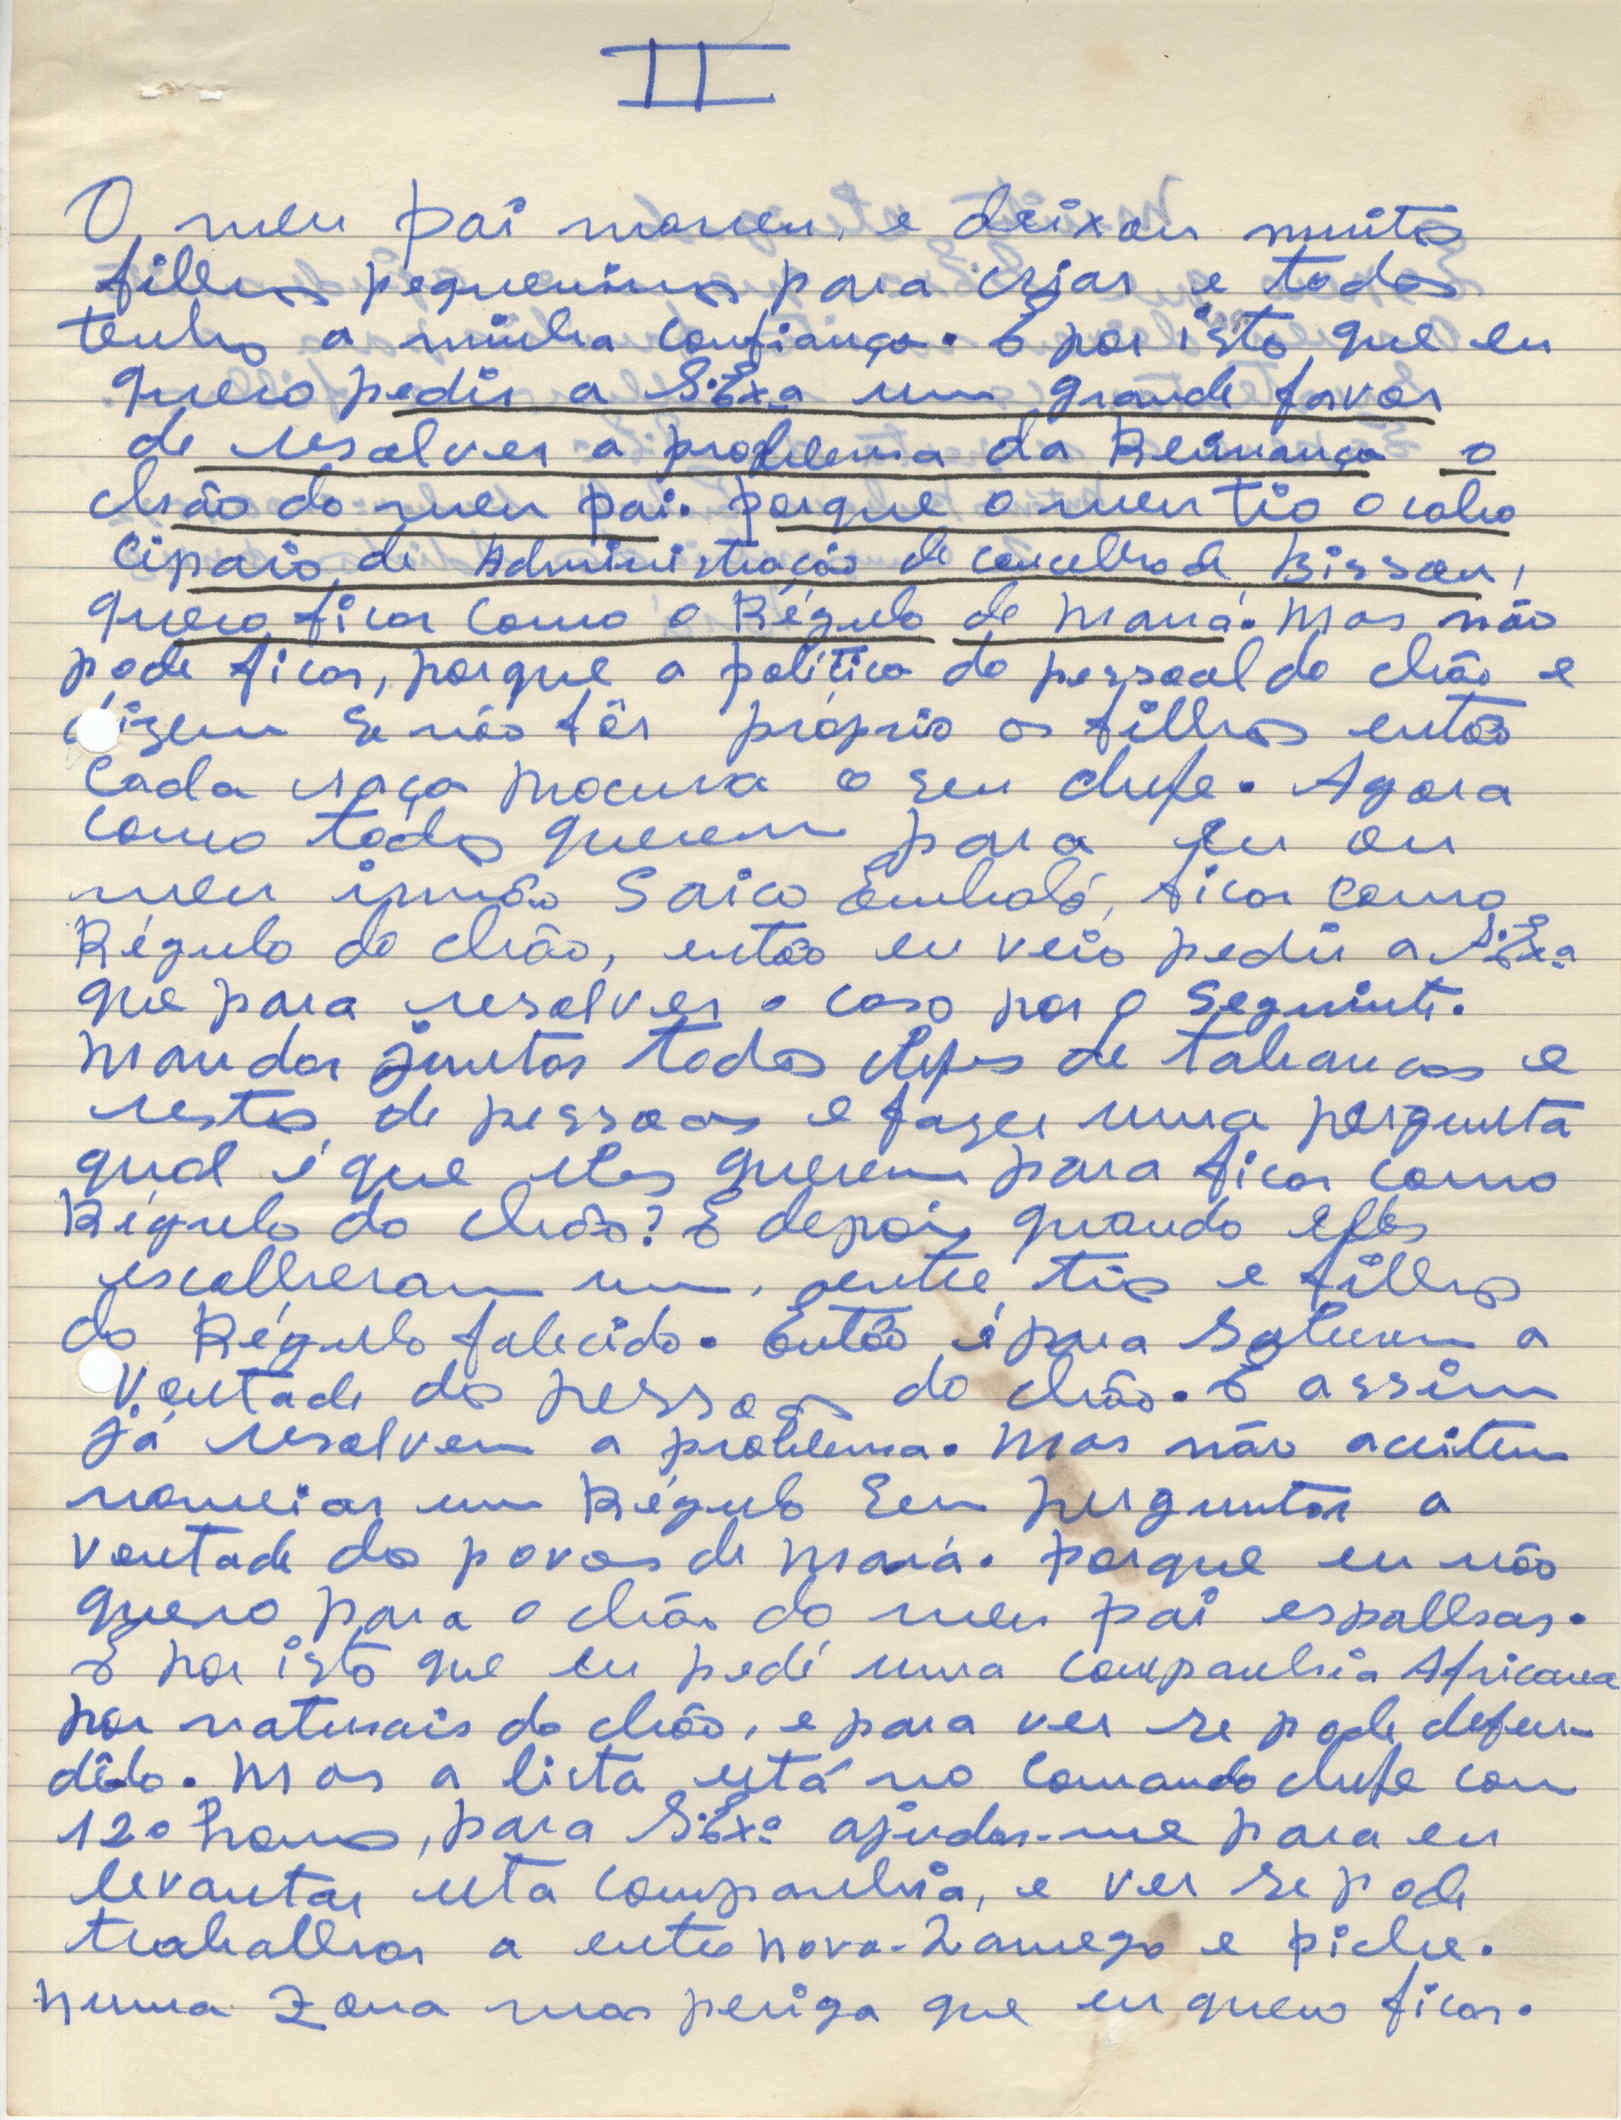 II
O meu pai morreu, e deixou muitos
filhos pequeninos para criar e todos
tenho a minha confiança. É por isto que eu
quero pedir a S. Exa um grande favor
de resolver a problema da Reinança o
chão do meu pai. porque o meu tio o cabo
cipaio de Administração de concelho de Bissau,
quero ficar como o Régulo de Maná. Mas não
pode ficar, porque a política do pessoal do chão e
dizem se não fôr próprio os filhos então
Cada raça procura o seu chefe. Agora
como todos querem para eu ou
meu irmão Saico Embaló, ficar como
Régulo do chão, então eu veio pedir a S. Exa
que para resolver o caso por o seguinte.
Mandar juntar todos chefes de tabancas e
restos de pessoas e fazer uma pergunta
qual é que eles querem para ficar como
Régulo do chão? E depois quando eles
escolheram um, entre tio e filhos
do Régulo falecido. Então é para saberem a
vontade dos pessoas do chão. E assim
já resolvem a problema. Mas não aceitem
nomeiar um Régulo sem perguntar a
vontade dos povos de Maná. porque eu não
quero para o chão do meu pai espalhar.
É por isto que eu pedi uma companhia Africana
por naturais do chão, e para ver se pode defen-
dido. Mas a lista está no Comando chefe com
120 homs, para S. Exa ajudar-me para eu
levantar esta companhia, e ver se pode
trabalhar a entre nova-Lamego e piche.
numa zona mas periga que eu quero ficar.